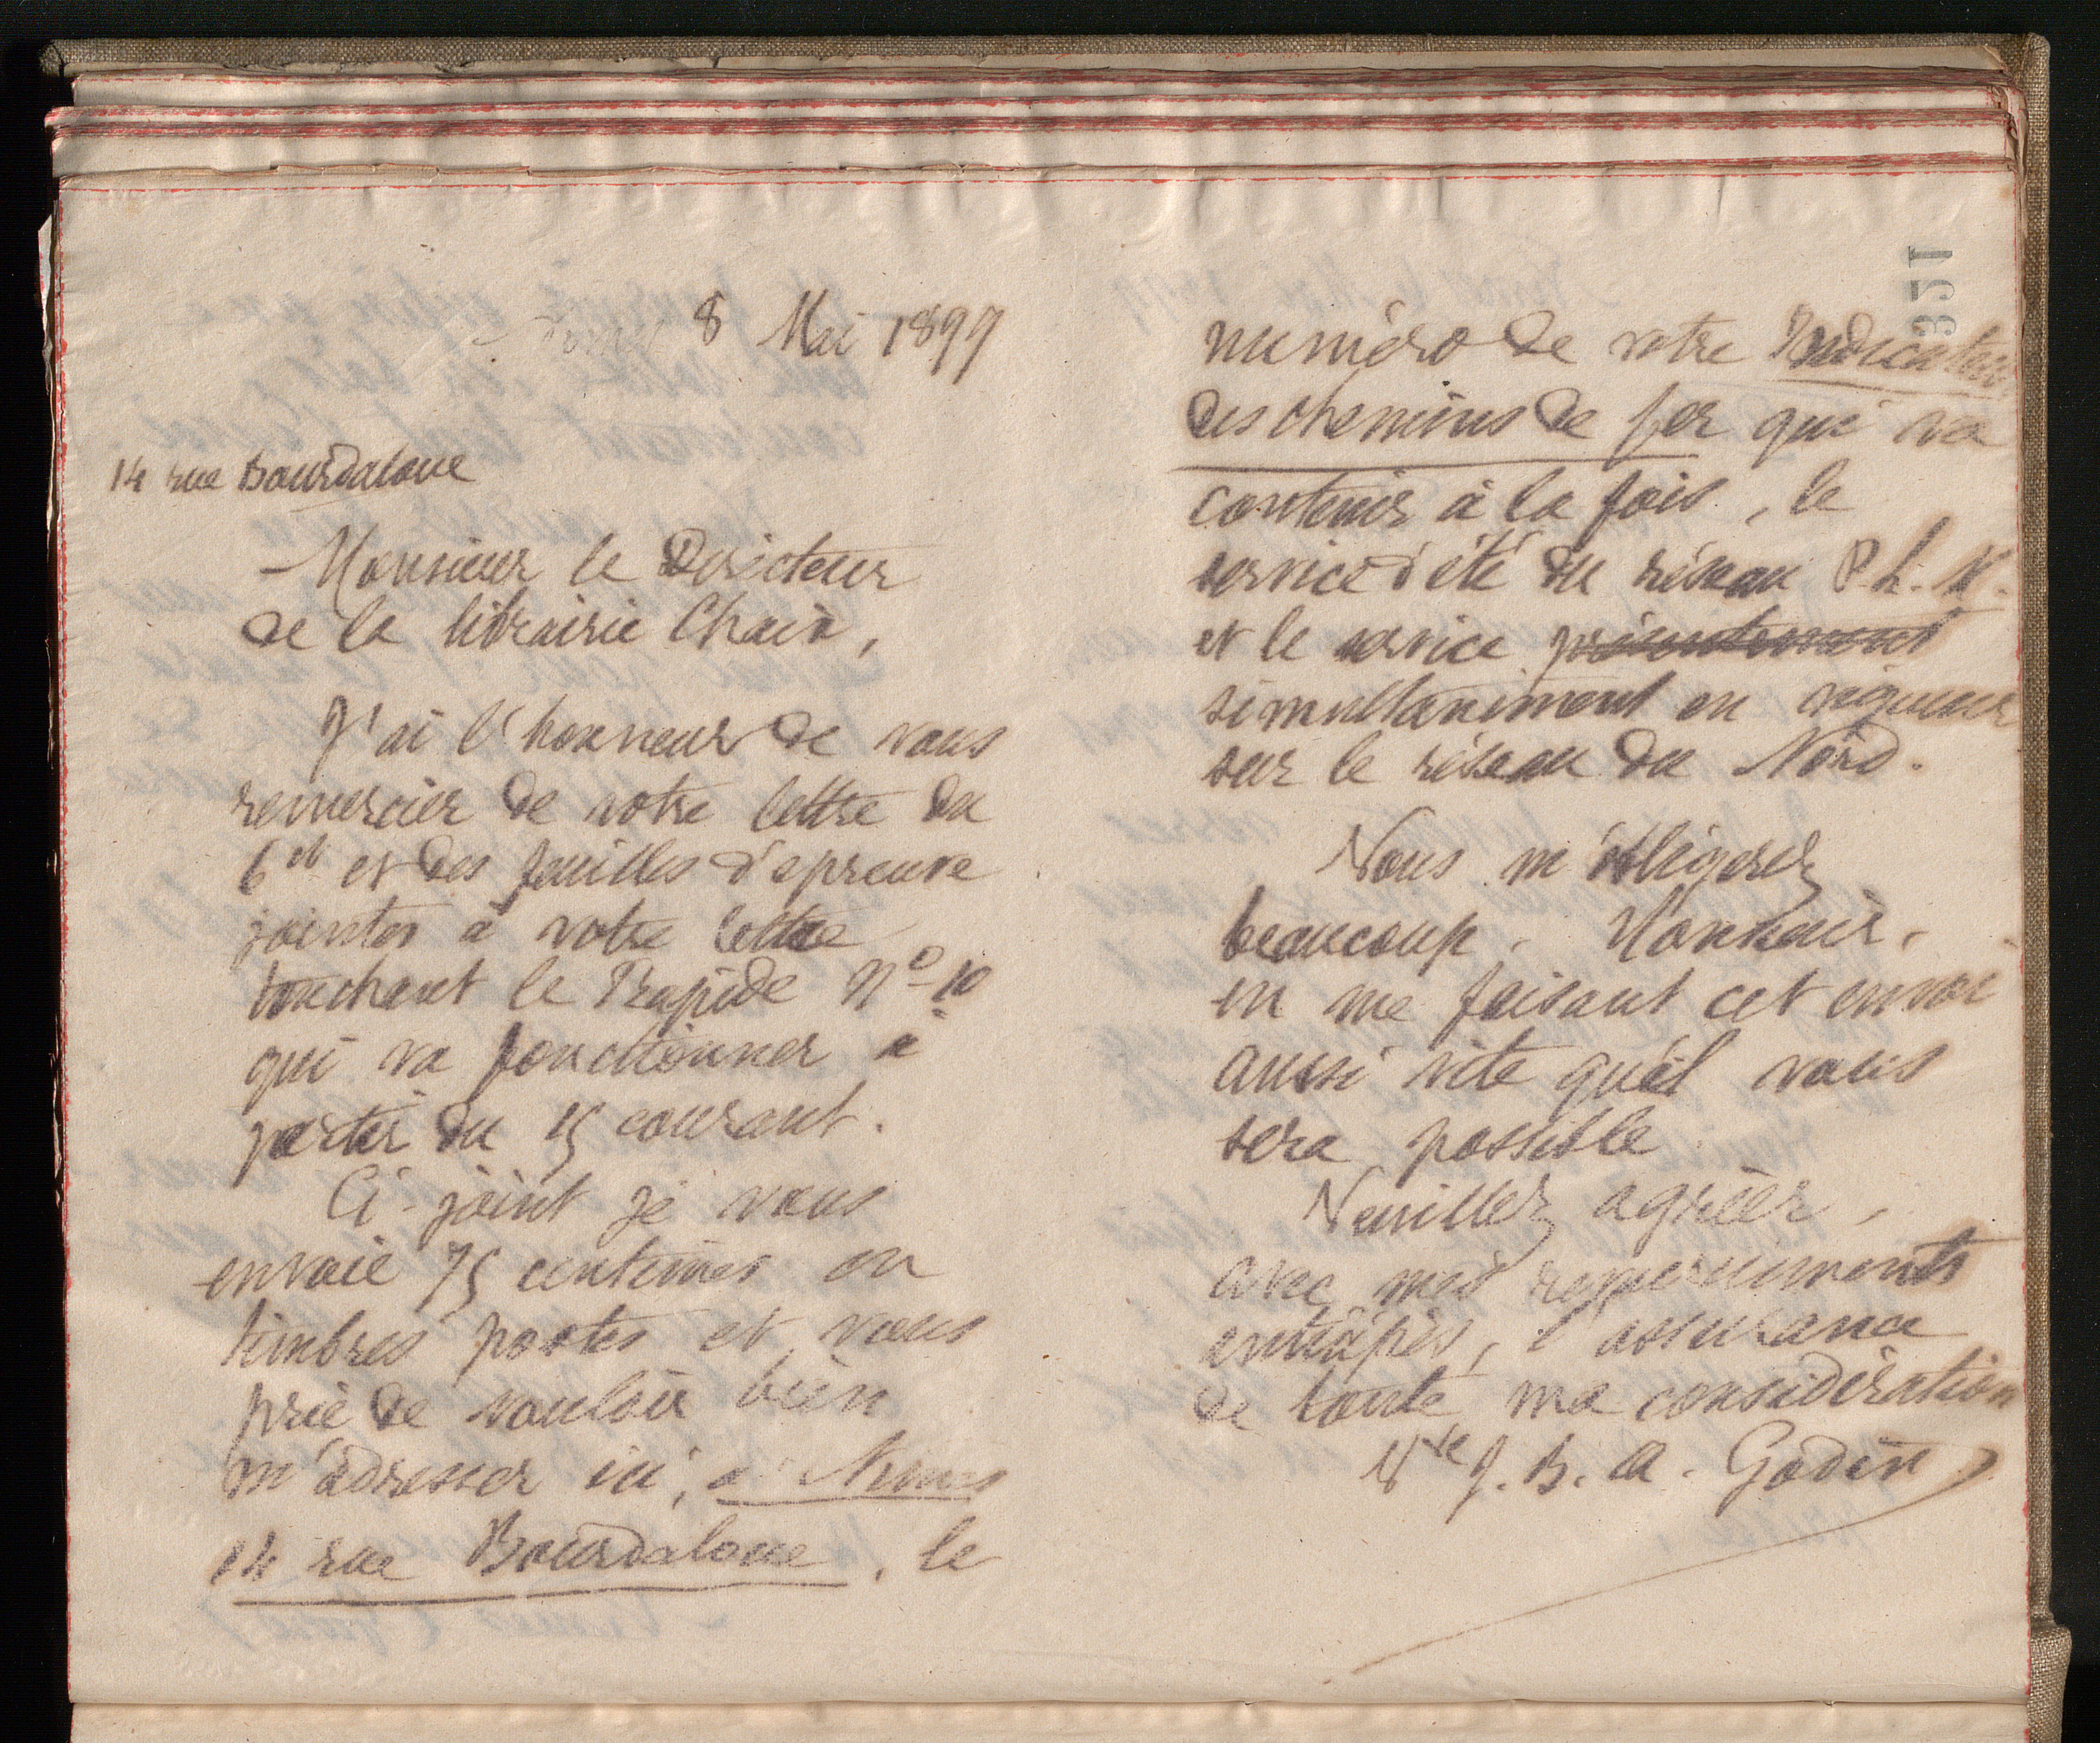 Nîmes 8 Mai 1897
14 rue Bourdaloue
Monsieur le Directeur
de la librairie Chaix,
J'ai l'honneur de vous
remercier de votre lettre du
6 et et des feuilles d'epreuve
jointes à votre lettre
touchant le Rapide No 10
qui va fonctionner à
partir du 15 courant.
Ci-joint je vous
envoie 75 centimes en
timbres postes et vous
prie de vouloir bien
m'adresser ici, à Nîmes
14 rue Bourdaloue, le
351
numéro de votre Indicateur
des chemins de fer qui va
contenir à la fois, le
service d'été du réseau P.L.M.
et le service présentement
simultanément en vigueur
sur le réseau du Nord.
Vous m'obligerez
beaucoup, Monsieur,
en me faisant cet envoi
aussi vite qu'il vous
sera possible
Veuillez agréer,
avec mes remerciements
anticipés, l'assurance
de toute ma considération
Vve J. B. A. Godin